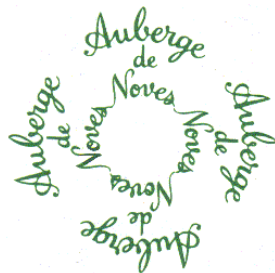 Auberge
de
Noves
Auberge
de
Noves
Auberge
de
Noves
Auberge
de
Noves